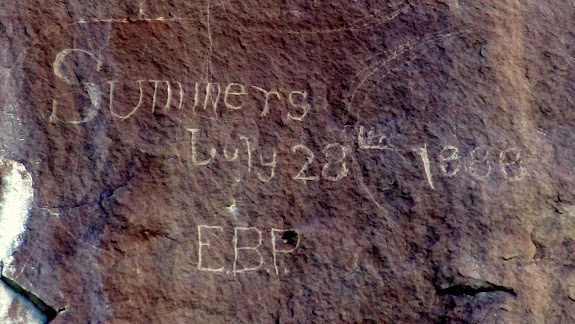 Summers
July 28th 1888
E.B.P.